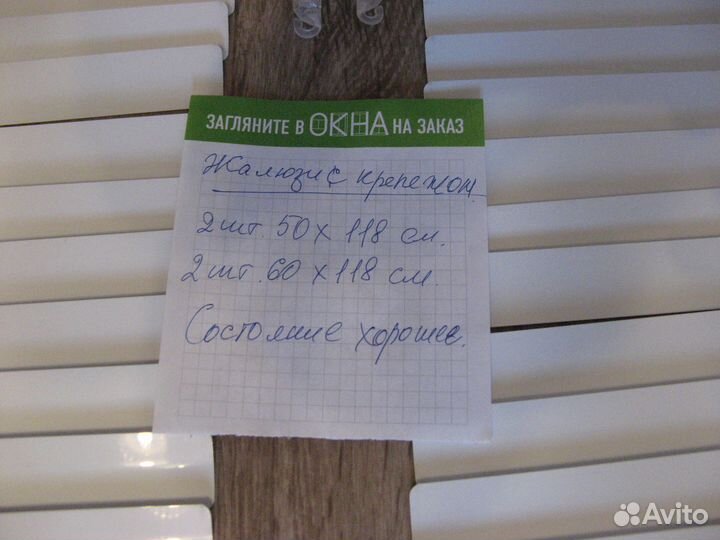 ЗАГЛЯНИТЕ В ОКНА НА ЗАКАЗ
Жалюзи с крепежом.
2 шт. 50 х 118 см.
2 шт. 60 х 118 см.
Состояние хорошее.
Avito